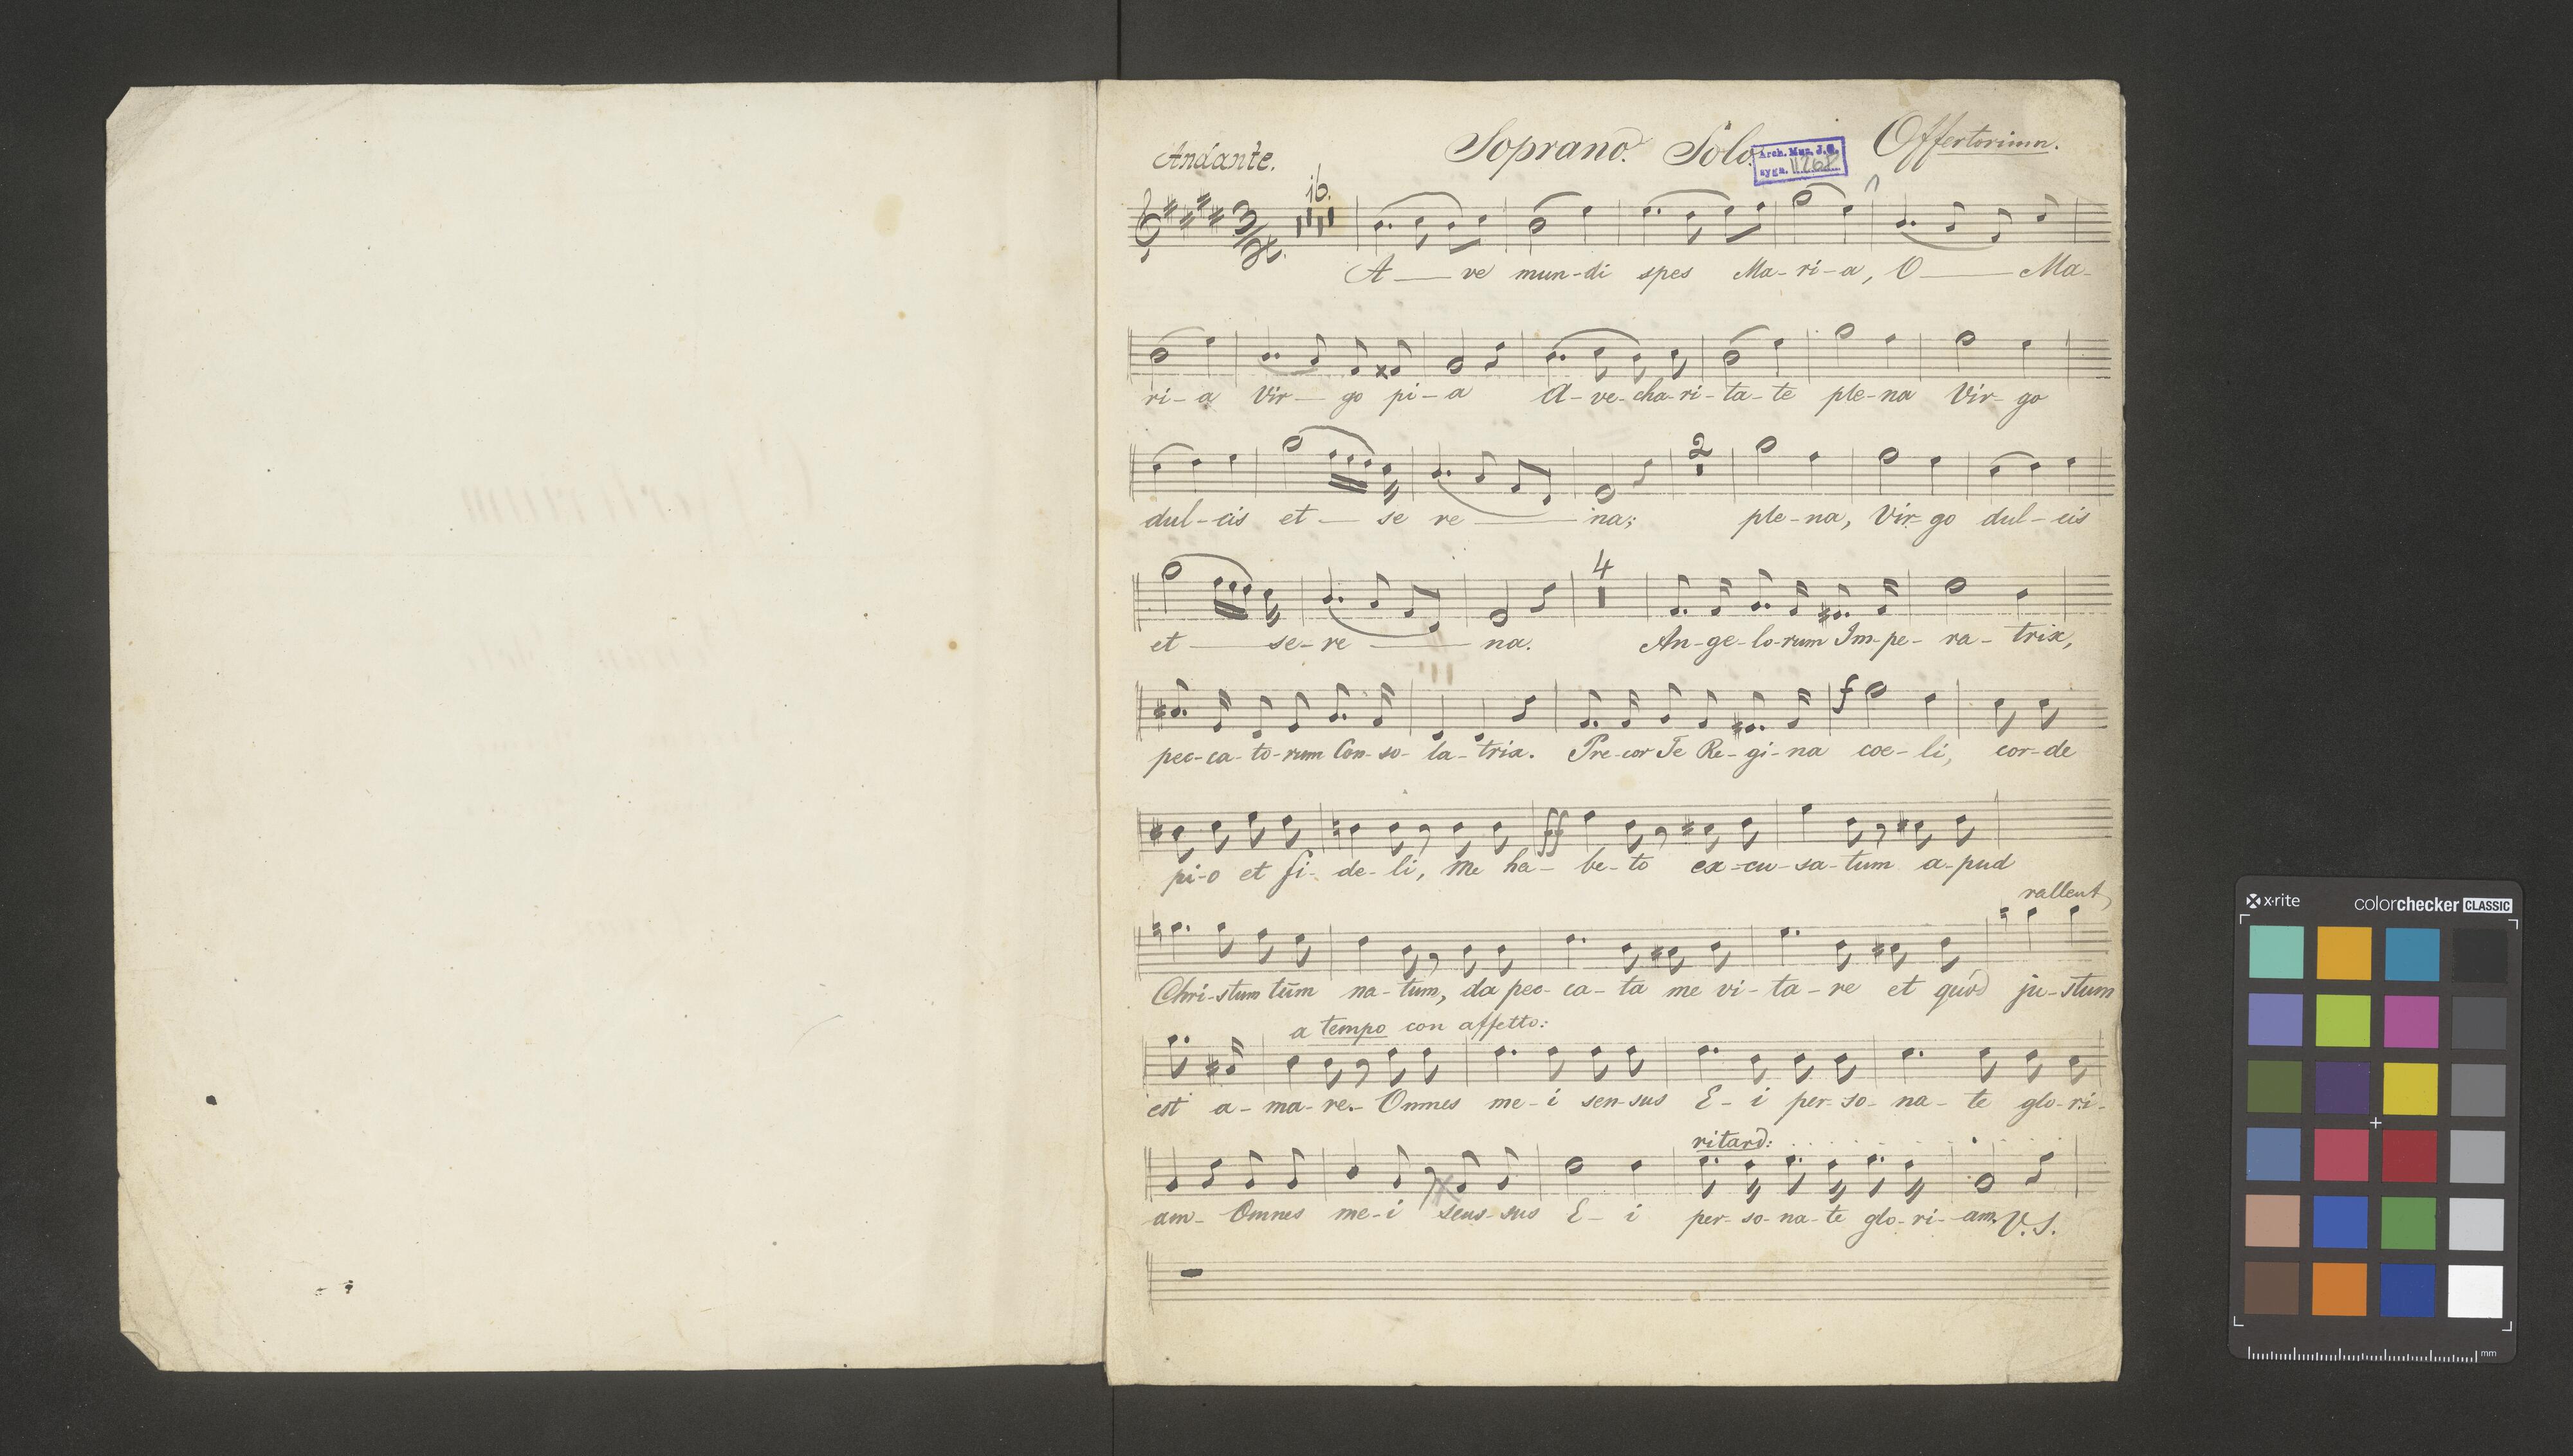 Andante.
Soprano. Solo.
Offertorium.
Arch. Muz. J. G.
sygn. 11268
16.
A — ve mun-di spes Ma-ri-a, O — Ma-
ri-a Vir — go pi-a A-ve-cha-ri-ta-te ple-na Vir-go
dul-cis et — se re — na;
2
ple-na, Vir-go dul-cis
et — se-re — na.
4
An-ge-lo-rum Im-pe-ra-trix,
pec-ca-to-rum Con-so-la-trix. Pre-cor Te Re-gi-na coe-li, cor-de
f
pi-o et fi-de-li, me ha-be-to ex-cu-sa-tum a-pud
ff
rallent
Chri-stum tūm na-tum, da pec-ca-ta me vi-ta-re et quód ju-stum
a tempo con affetto:
est a-ma-re. Omnes me-i sen-sus E-i per-so-na-te glo-ri-
ritard:
am- Omnes me-i sens-sus E-i per-so-na-te glo-ri-am. V. S.
x-rite colorchecker CLASSIC
mm